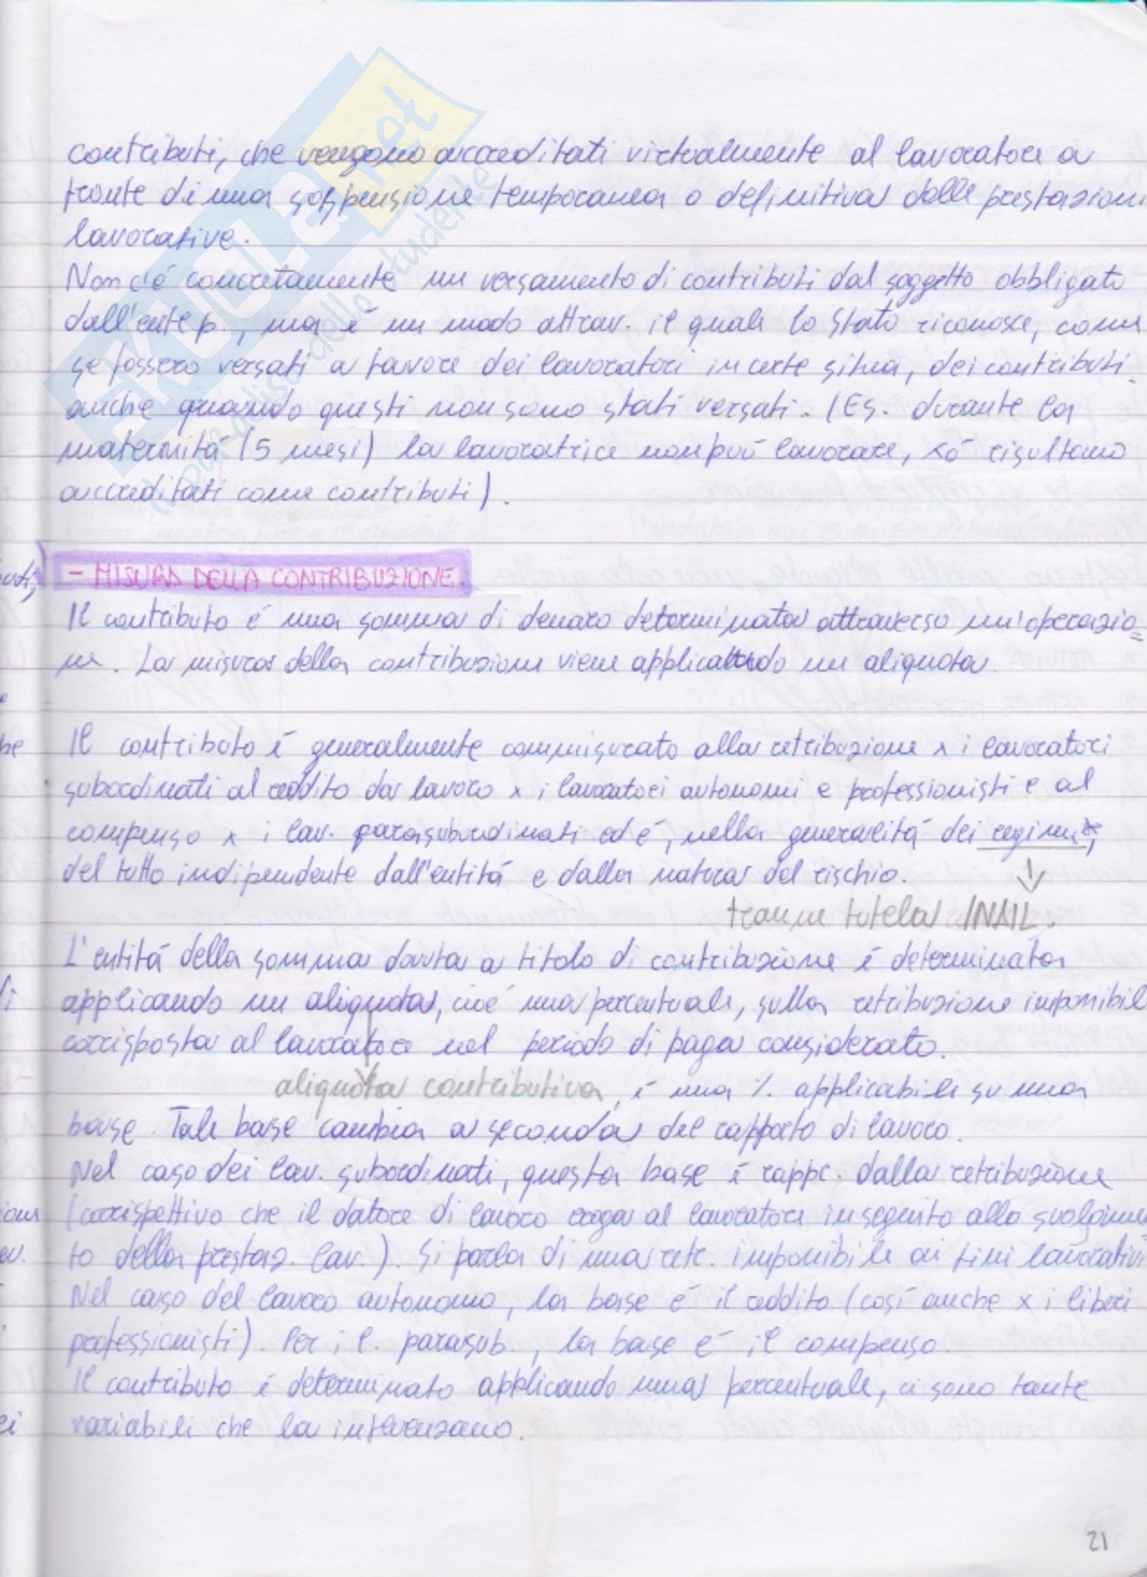 contributi, che vengono accreditati virtualmente al lavoratore a
fronte di una sospensione temporanea o definitiva delle prestazioni
lavorative.
Non c'é concretamente un versamento di contributi dal soggetto obbligato
dall'ente p., ma é un modo attrav. il quale lo Stato riconosce, come
se fossero versati a favore dei lavoratori in certe situa, dei contributi
anche quando questi non sono stati versati. (Es. durante la
maternitá (5 mesi) la lavoratrice non può lavorare, xó risultano
accreditati come contributi).
- MISURA DELLA CONTRIBUZIONE.
Il contributo é una somma di denaro determinata attraverso un'operazio=
ne. La misura della contribuzione viene applicando un aliquota.
Il contributo é generalmente commisurato alla retribuzione x i lavoratori
subordinati al reddito da lavoro x i lavoratori autonomi e professionisti e al
compenso x i lav. parasubordinati ed é, nella generalitá dei regimi*,
del tutto indipendente dall'entitá e dalla natura del rischio.
tranne tutela INAIL.
L'entitá della somma dovuta a titolo di contribuzione é determinata
applicando un aliquota, cioé una percentuale, sulla retribuzione imponibil
corrisposta al lavoratore nel periodo di paga considerato.
aliquota contributiva, é una % applicabile su una
base. Tale base cambia a seconda del rapporto di lavoro.
Nel caso dei lav. subordinati, questa base é rappr. dalla retribuzione
(corrispettivo che il datore di lavoro eroga al lavoratore in seguito allo svolgime
to della prestaz. lav.). Si parla di una retr. imponibile ai fini lavorativi
Nel caso del lavoro autonomo, la base é il reddito (cosí anche x i liberi
professionisti). Per i l. parasub., la base é il compenso.
Il contributo é determinato applicando una percentuale, ci sono tante
variabili che la influenzano.
21